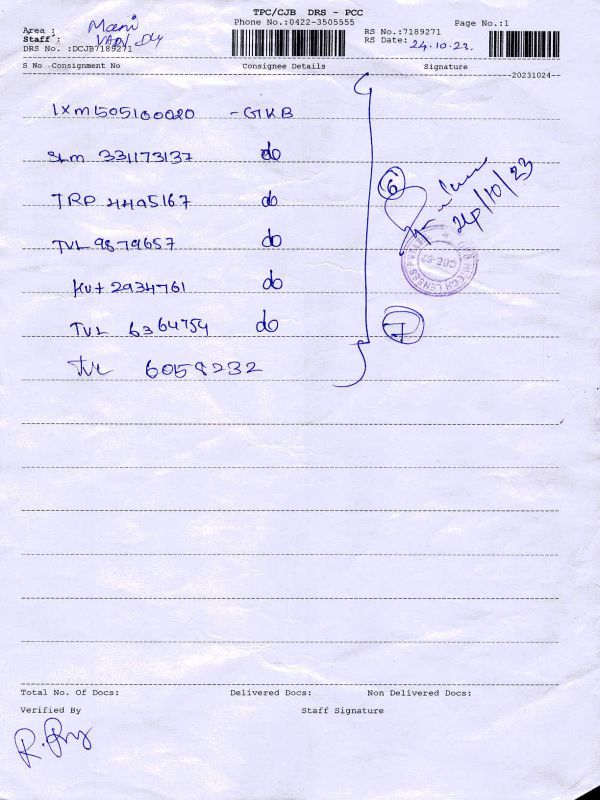 TPC/CJB DRS - PCC
Phone No.:0422-3505555
Page No.:1
Area : Mani
Staff : VAN Dly
DRS No. :DCJB7189271
RS No.:7189271
RS Date: 24.10.23.
S No Consignment No Consignee Details Signature
20231024
IXM505100020 - GKB
SLM 331173137 do
TRP 4495167 do
TVL 9879657 do
Hut 2934761 do
TVL 6364754 do
TVL 6058232
6
24/10/23
7
Total No. Of Docs: Delivered Docs: Non Delivered Docs:
Verified By Staff Signature